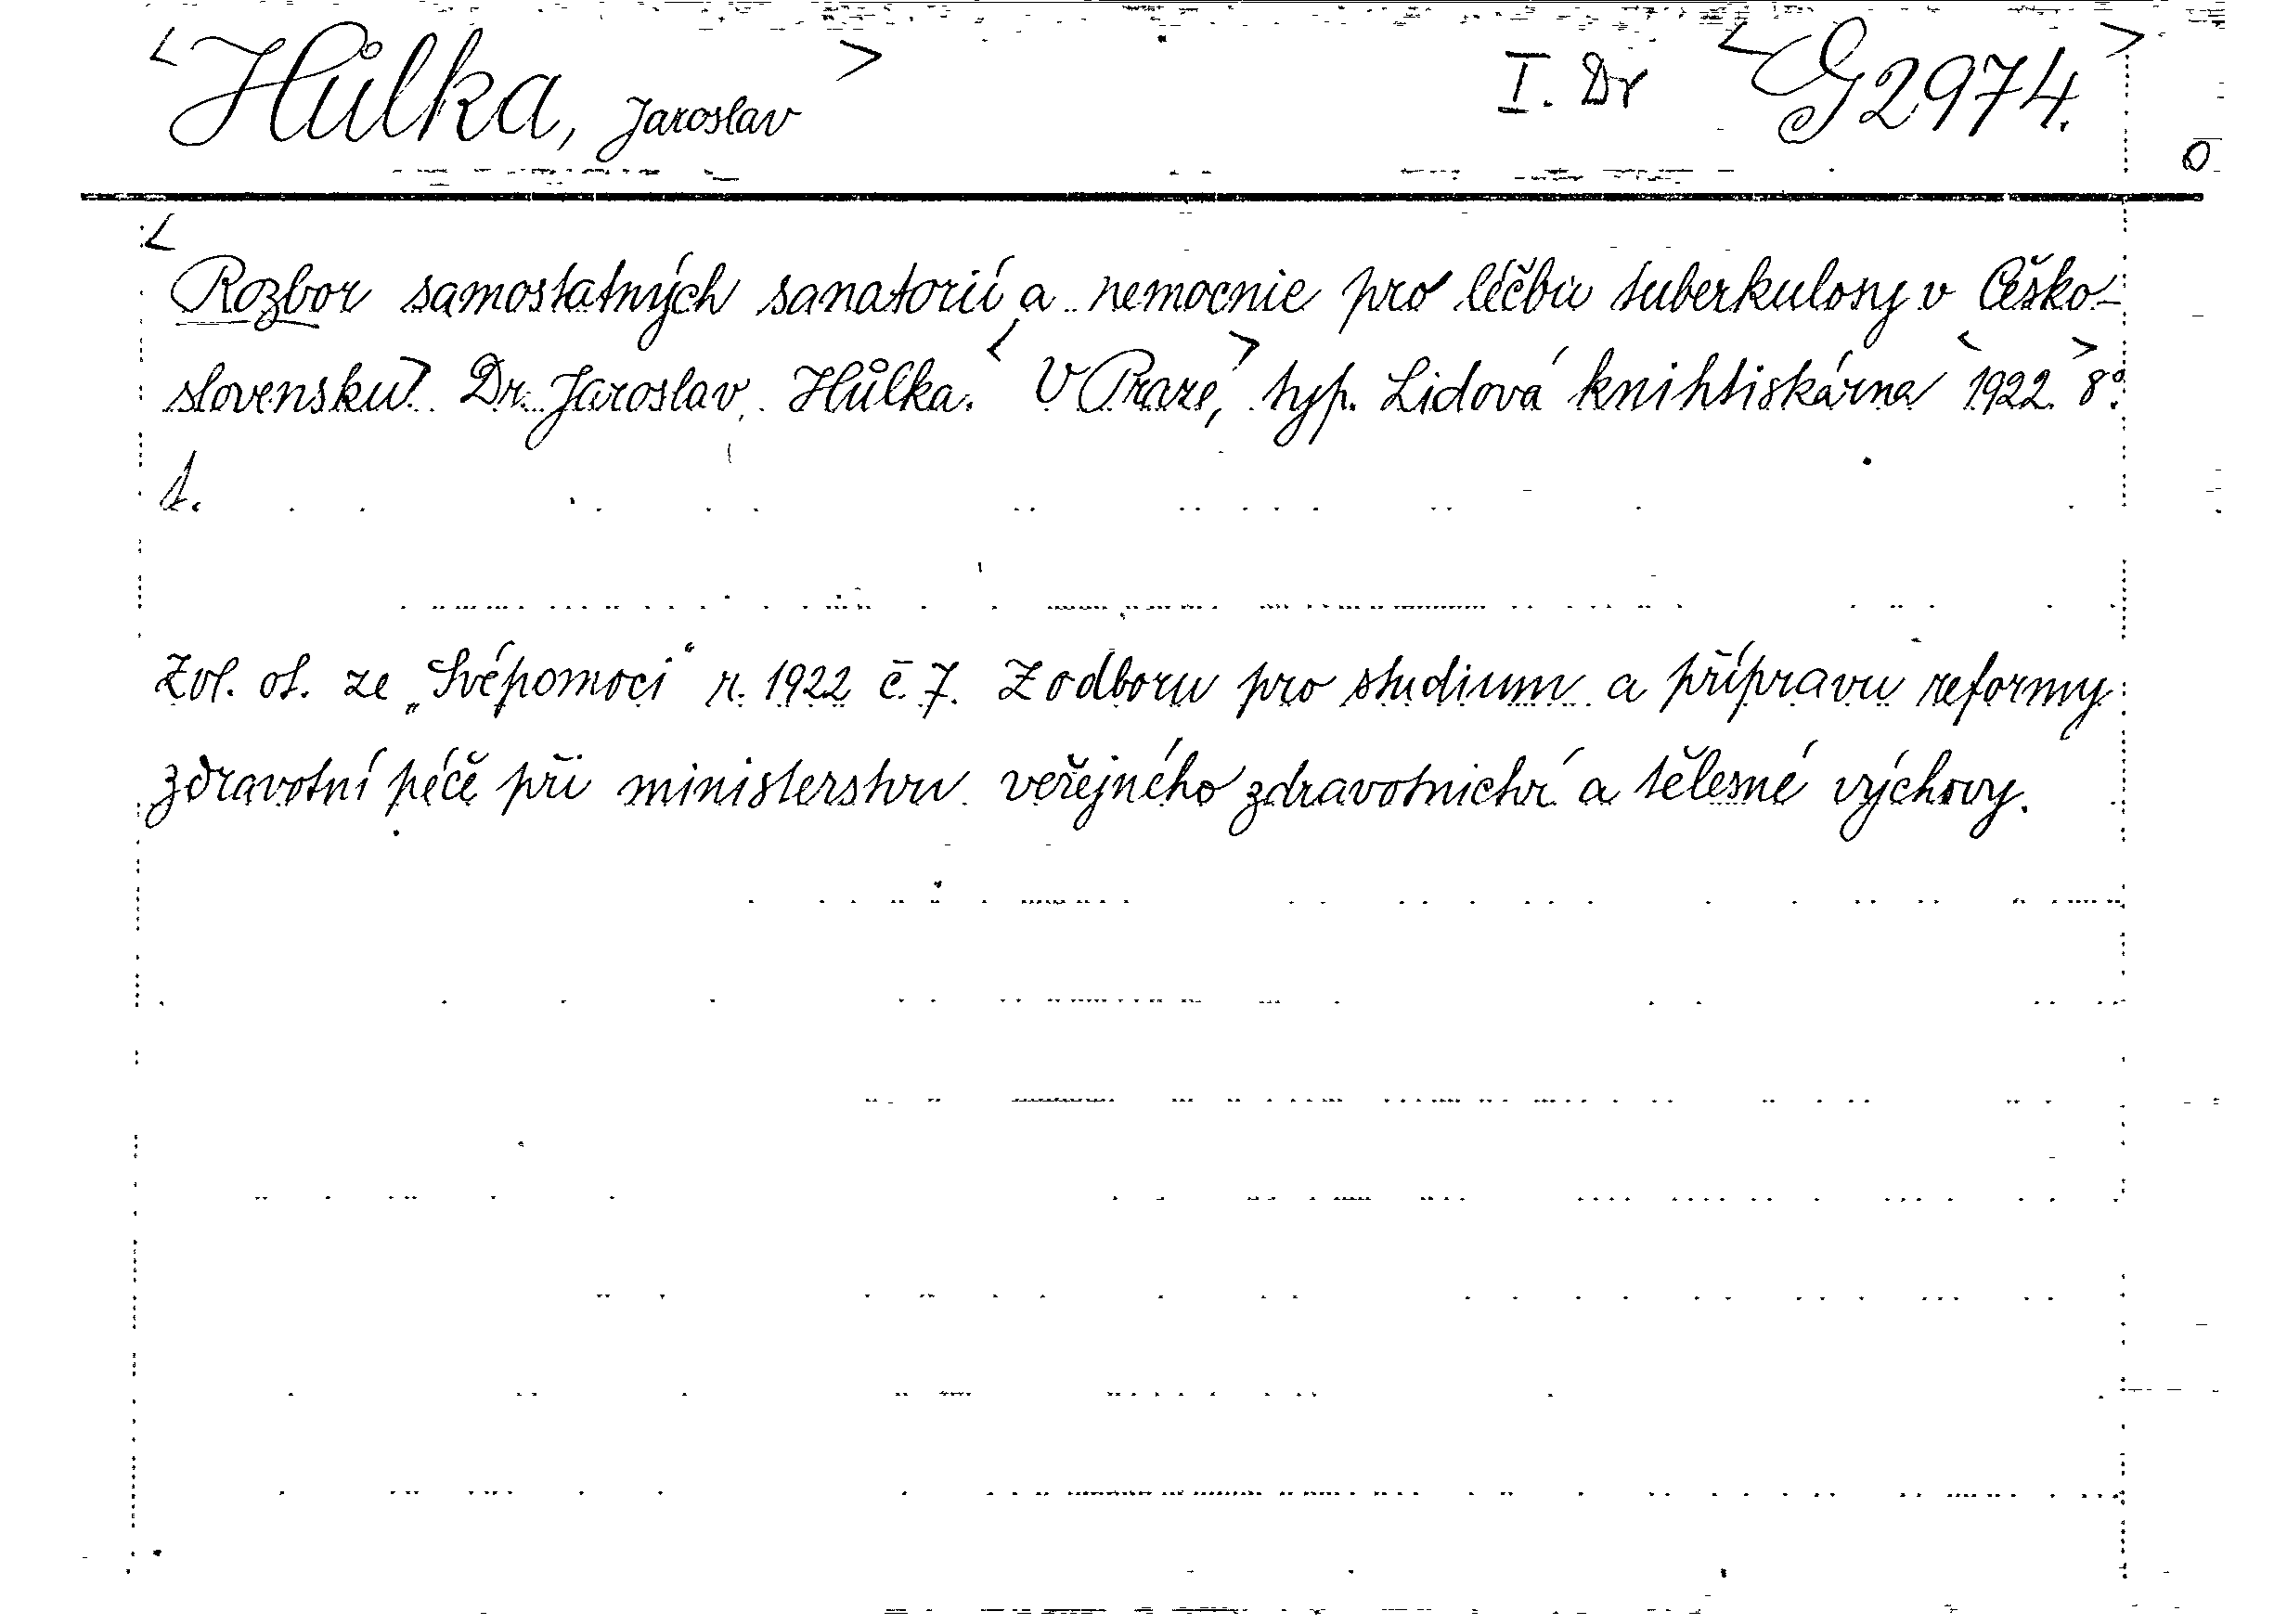 <Hůlka, Jaroslav> I. Dr <G 2974.>
0
<Rozbor samostatných sanatorií a nemocnic pro léčbu tuberkulosy v Česko-
slovensku> Dr. Jaroslav Hůlka. <V Praze,> typ. Lidová knihtiskárna <1922.> 8°.
1.
Zvl. ot. ze „Svépomoci“ r. 1922 č. 7. Z odboru pro studium a přípravu reformy
zdravotní péče při ministerstvu veřejného zdravotnictví a tělesné výchovy.